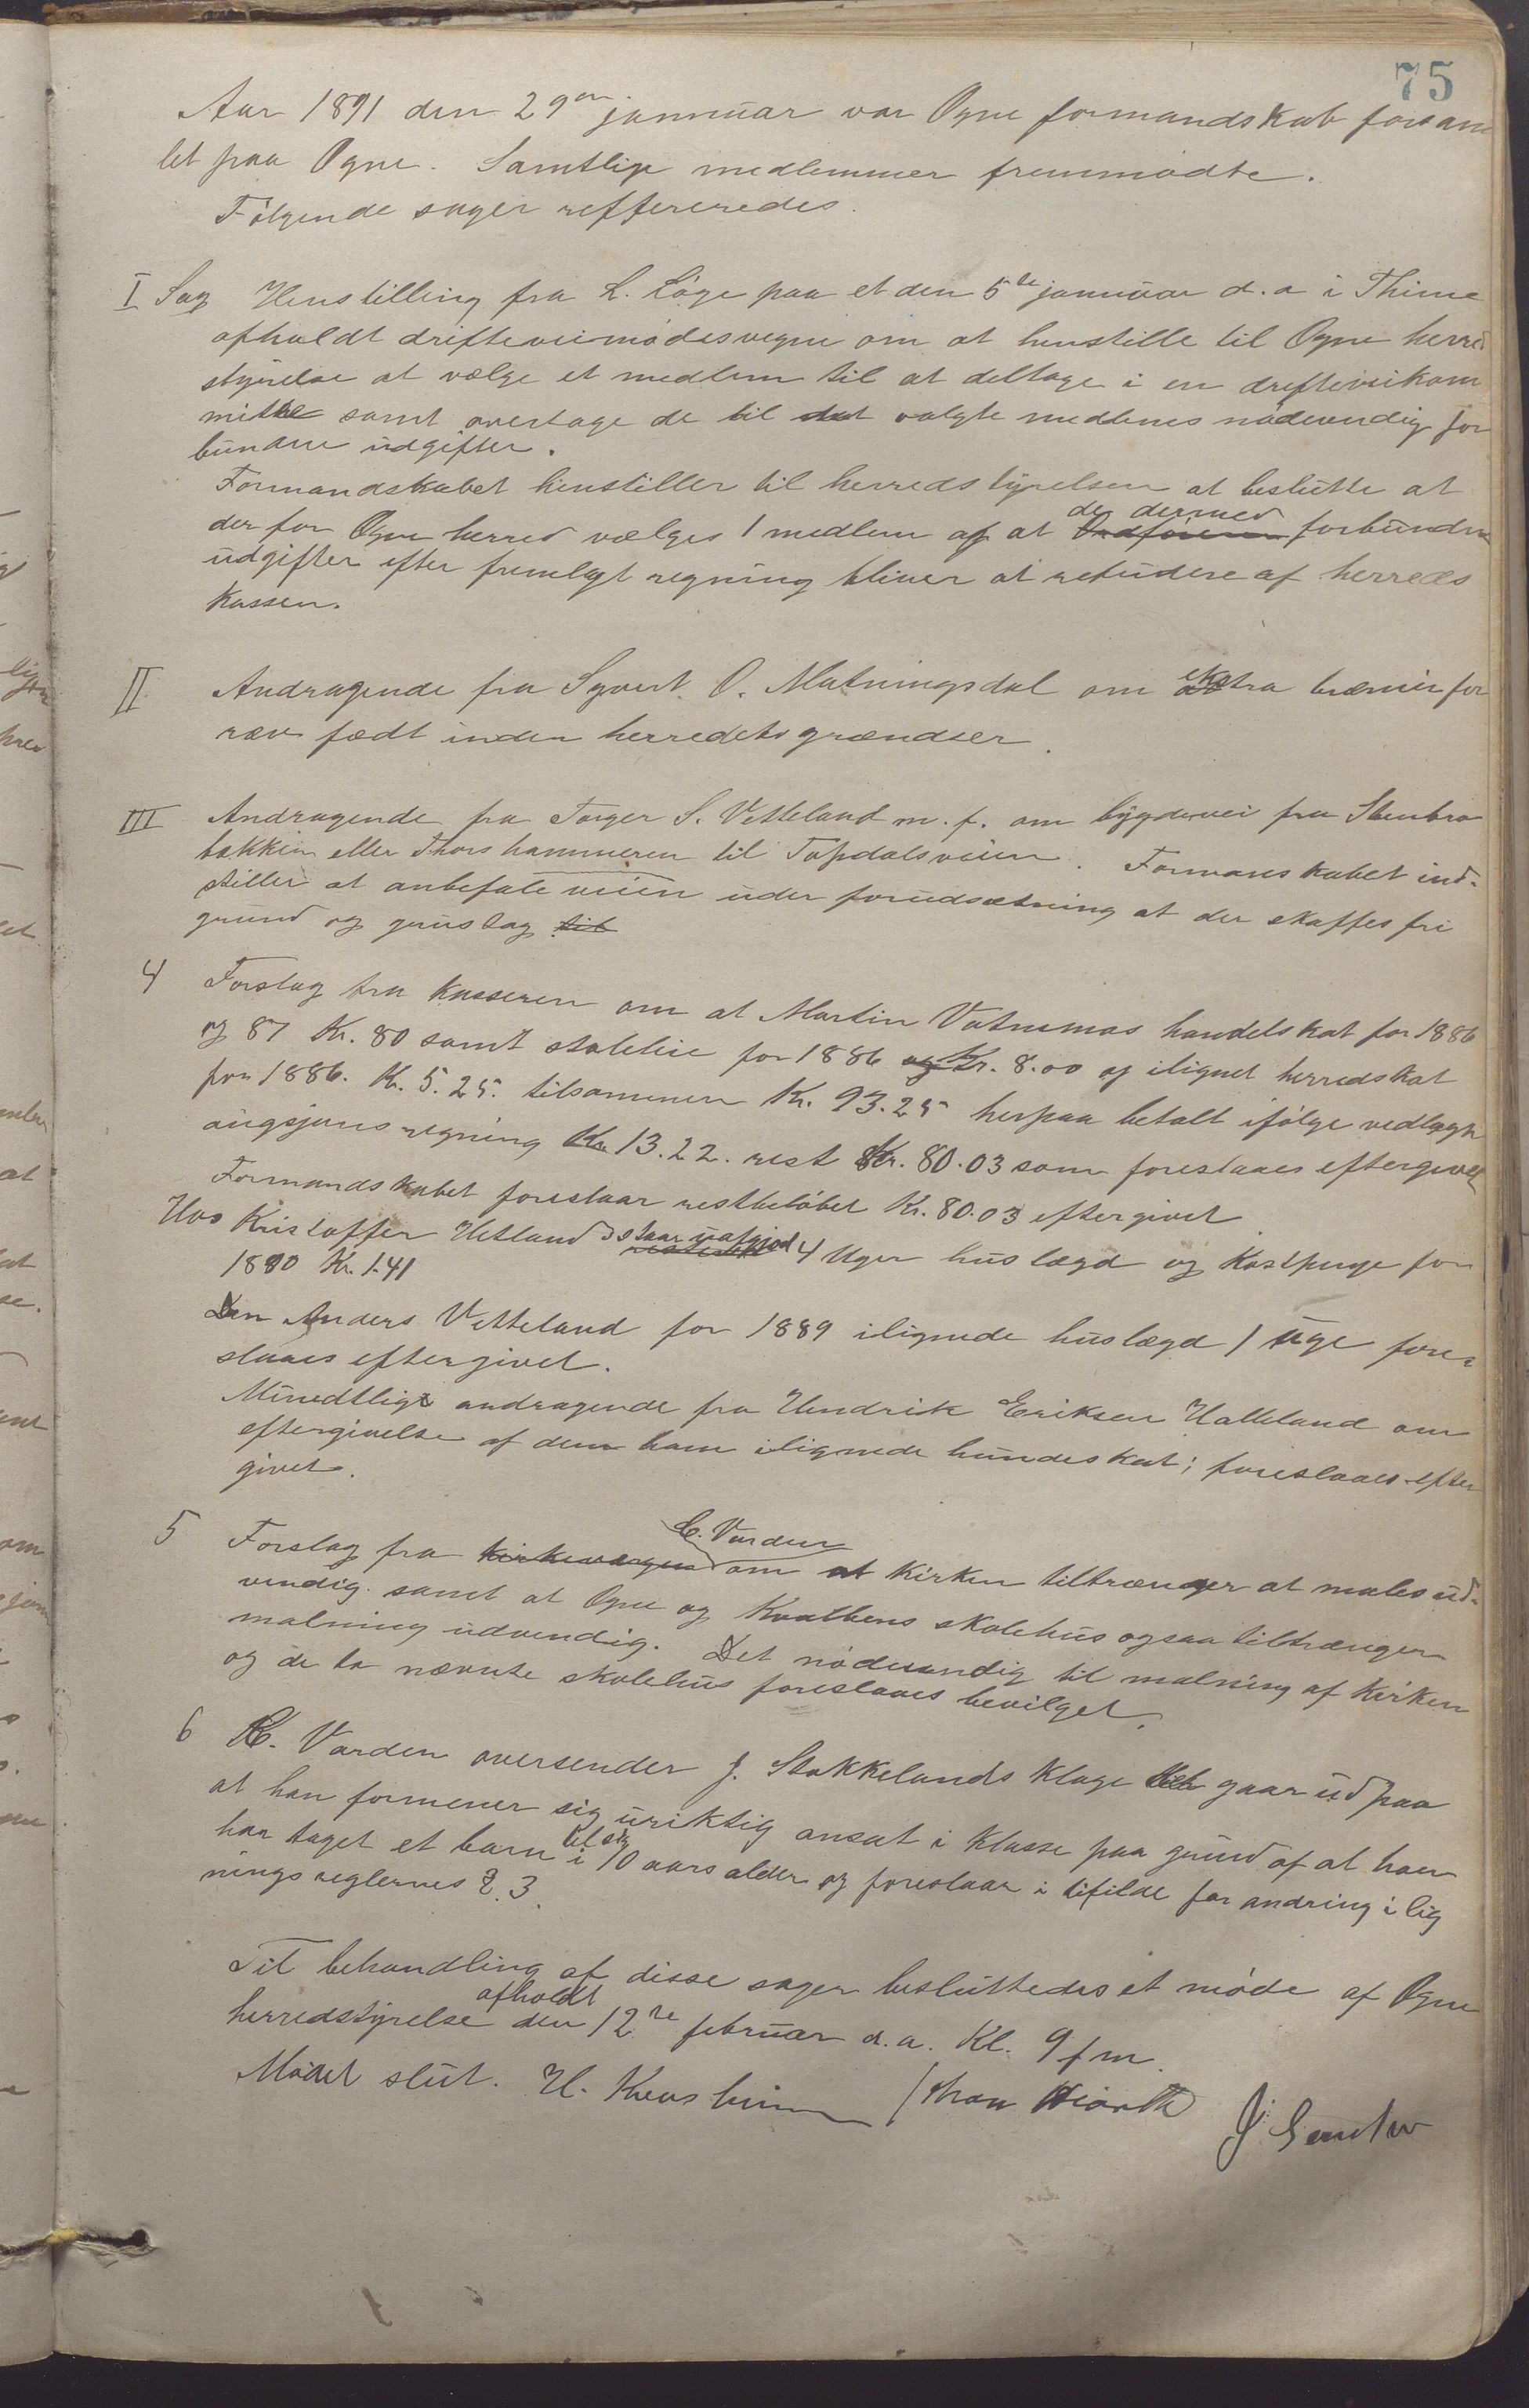 75
Aar 1891 den 29en januar var Ogne formandskab forsam
let paa Ogne. Samtlige medlemmer fremmødte.
Følgende sager reffereredes.
I Sag Henstilling fra L. Løge paa et den 5te januar d.a i Thime
afholdt drifteveimødesvegne om at henstille til Ogne herred
styrelse at vælge et medlem til at deltage i en drifteveikom
mitte samt overtage de til det valgte medlems nødvendig for
bundne udgifter.
Formandskabet henstiller til herredstyrelsen at beslutte at
der for Ogne herred vælges 1 medlem og at de dermed forbundne
udgifter efter fremlagt regning bliver at refundere af herreds
kassen.
II Andragende fra Syvert O. Matningsdal om ekstra præmie for
ræv født inden herredets grændser.
III Andragende fra Torger S. Vetteland m.f. om bygdevei fra Stenbro
bakken eller Thorshammeren til Topdalsveien. Formanskabet ind-
stiller at anbefale veien under forudsætning at der skaffes fri
grund og gruslag til
4 Forslag fra kasseren om at Martin Vatnemos handelskat for 1886
og 87 Kr. 80 samt stolleie for 1886 Kr. 8.00 og ilignet herredskat
for 1886. Kr. 5.25. tilsammen Kr. 93.25 herpaa betalt ifølge vedlagte
augsjonsregning Kr. 13.22. rest Kr. 80.03 som foreslaaes eftergivet
Formandskabet foreslaar restbeløbet Kr. 80.03 eftergivet
Hos Kristoffer Hetland staar uafgjort 4 Uger huslægd og Kostpenge for
1880 Kr. 1.41
Den Anders Vetteland for 1889 ilignede huslægd 1 uge fore-
slaaes eftergivet.
Mundtligt andragende fra Hendrik Eriksen Halleland om
eftergivelse af den ham ilignede hundeskat; foreslaaes efter
givet.
5 Forslag fra kirkeværgen E. Varden om at Kirken tiltrænger at males ud-
vendig samt at Ogne og Kvalbens skolehus ogsaa tiltrænger
malning udvendig. Det nødvendig til malning af Kirken
og de to nævnte skolehus foreslaaes bevilget.
6 E. Varden oversender J. Stokkelands klage gaar ud paa
at han formener sig uriktig ansat i klasse paa grund af at han
har taget et barn til sig i 10 aars alder og foreslaar i tifilde for andring i lig
ningsreglernes § 3.
Til behandling af disse sager besluttedes et møde af Ogne
herredstyrelse afholdt den 12te februar d.a. Kl. 9 fm.
Mødet slut. H.